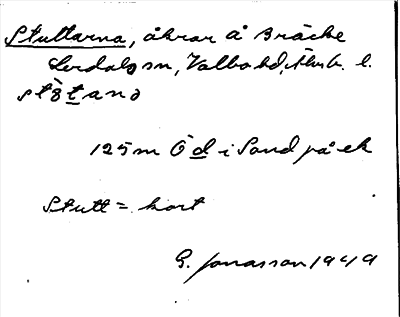 Stuttarna, åkrar å Bräcke
Lerdals sn, Valbo hd, Älvsb. l.
stȯ̀tana
125 m Öd i Sand på ek
Stutt = kort
G. Jonasson 1949